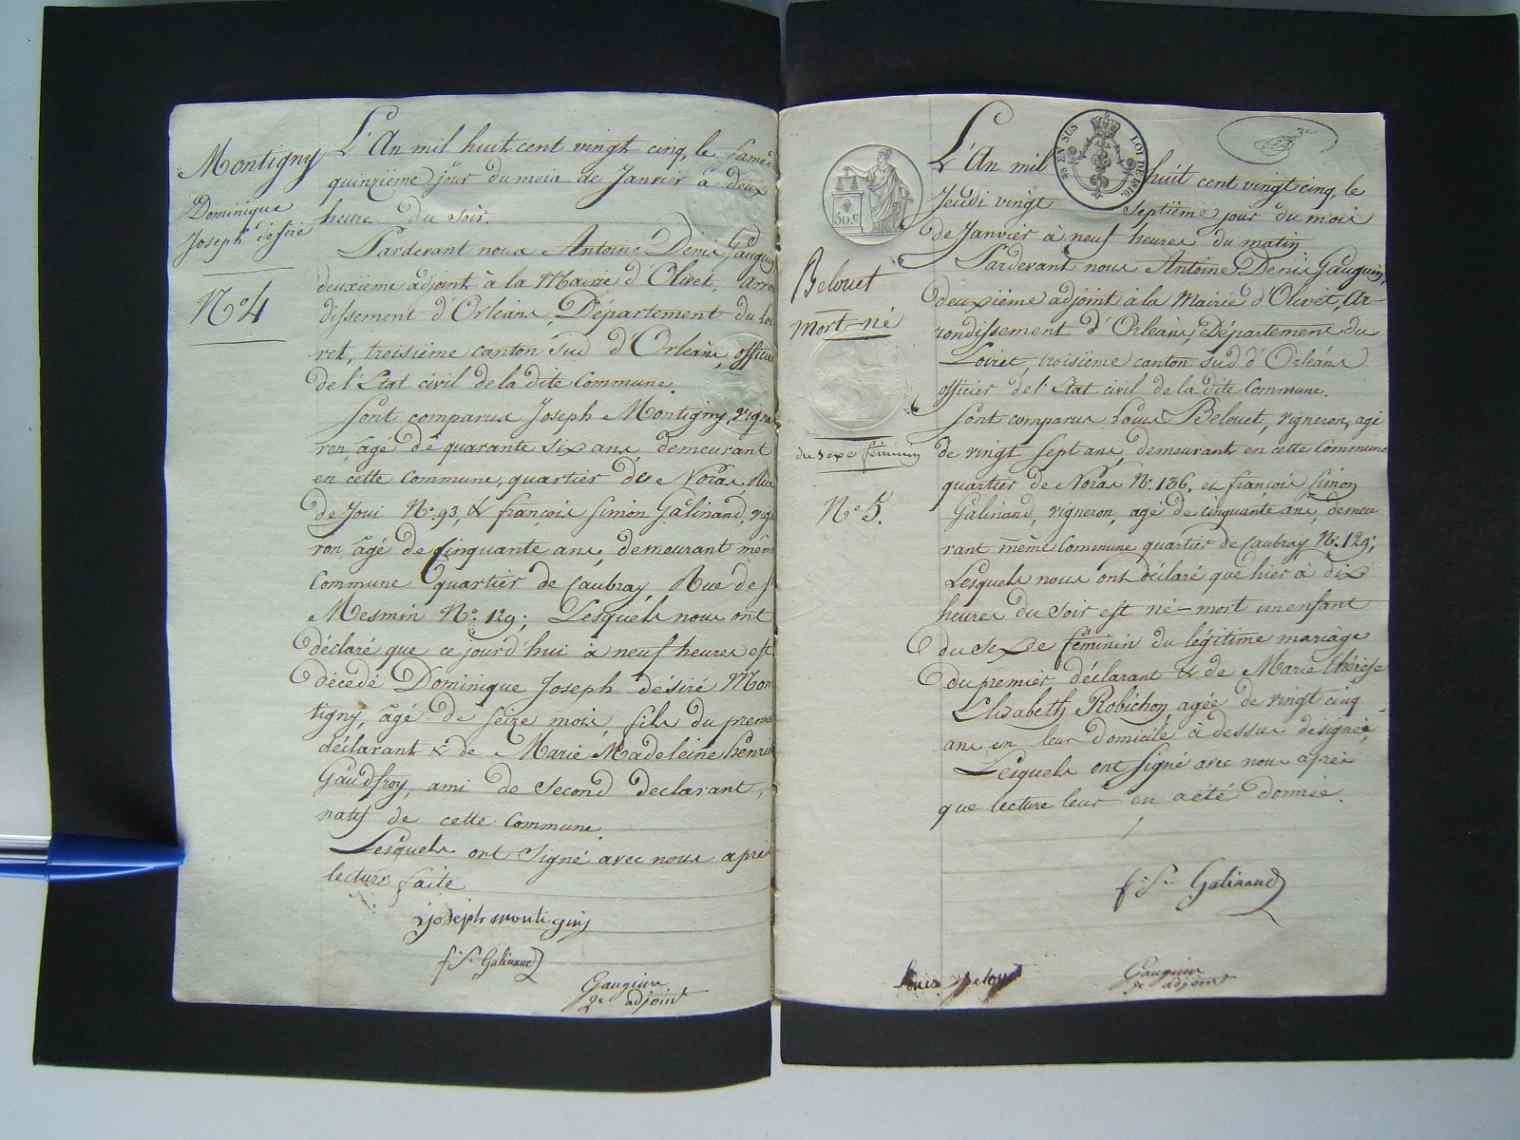 Montigny
Dominique
Joseph désiré
N.o 4
L'An mil huit cent vingt cinq, le Samedi
quinzième jour du mois de Janvier à deux
heure du soir.
Pardevant nous Antoine Denis Gauguin
deuxième adjoint à la Mairie d'Olivet, arron
dissement d'Orléans, Département du Loi
ret, troisième canton sud d'Orléans, officier
de l'Etat civil de la dite Commune.
Sont comparus Joseph Montigny, vigne
ron, âgé de quarante six ans, demeurant
en cette Commune, quartier des Noras, Rue
de Joui N.o 93, & françois Simon Galinand, vigne
ron, âgé de Cinquante ans, demeurant même
Commune quartier de Caubray, Rue de St
Mesmin N.o 129; Lesquels nous ont
déclaré que ce jourd'hui à neuf heures est
décédé Dominique Joseph désiré Mon
tigny, âgé de seize mois, fils du premier
déclarant & de Marie Madeleine henriette
Gaudfroy, ami de Second declarant,
natif de cette Commune.
Lesquels ont Signé avec nous après
lecture faite
joseph montigniy
f. S. Galinand
Gauguin
2e adjoint
50 EN SUS LOI DE 1816
50.c
2e
Belouet
mort-né
du sexe féminin
N.o 5.
L'An mil huit cent vingt cinq, le
Jeudi vingt Septième jour du mois
de Janvier à neuf heures du matin
Pardevant nous Antoine Denis Gauguin,
deuxième adjoint à la Mairie d'Olivet, Ar-
rondissement d'Orléans, Département du
Loiret, troisième canton sud d'Orléans
officier de l'Etat civil de la dite Commune.
Sont comparus Louis Belouet, vigneron, agé
de vingt sept ans, demeurant en cette Commune
quartier de Noras N.o 136, et françois Simon
Galinand, vigneron, agé de cinquante ans, demeu
rant même Commune quartier de Caubray N.o 129;
Lesquels nous ont déclaré que hier à dix
heures du soir est né-mort un enfant
du Sexe féminin du légitime mariage
du premier déclarant & de Marie thérèse
Elisabeth Robichon agée de vingt cinq
ans en leur domicile ci dessus désignée,
Lesquels ont signé avec nous après
que lecture leur en a été donnée.
f. S. Galinand
Louis Belouet
Gauguin
2e adjoint